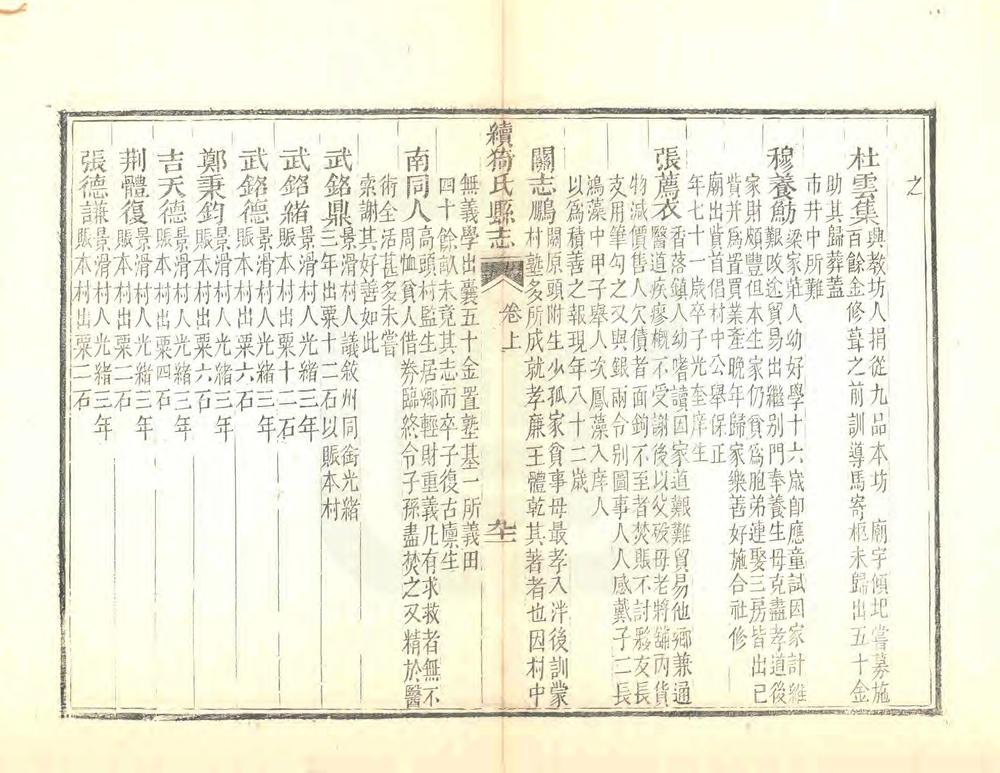 之
杜雲集與教坊人捐從九品本坊　廟宇傾圮嘗募施
百餘金修葺之前訓導馬寄柩未歸出五十金
助其歸葬蓋
市井中所難
穆養魴梁家莊人幼好學十六歲即應童試因家計維
艱敢迄貿易出繼别門奉養生母克盡孝道後
家財頗豐但本生家仍貧爲胞弟連娶三房皆出已
貲并爲置買業產晚年歸家樂善好施合社修
廟出貲首倡村中公舉保正
年七十一歲卒子光奎庠生
張薦衣香落鎮人幼嗜讀因家道艱難貿易他鄉兼通
醫道疾瘳概不受謝後以父歿母老將鋪內貨
物減價售人欠債者面鉤不至者焚賬不討夥友長
支用筆勾之又與銀兩令别圖事人人感戴子二長
鴻藻中甲子舉人次鳳藻入庠人
以爲積善之報現年八十二歲
關志鵬關原頭附生少孤家貧事母最孝入泮後訓蒙
村塾多所成就孝廉王體乾其著者也因村中
續猗氏縣志　卷上　九十二
無義學出囊五十金置塾基一所義田
四十餘畝未竟其志而卒子復古廩生
南同人高頭村監生居鄉輕財重義凡有求救者無不
周恤貧人借券臨終令子孫盡焚之又精於醫
術全活甚多未嘗
索謝其好善如此
武銘鼎景滑村人議敘州同銜光緒
三年出粟十二石以賬本村
武銘緒景滑村人光緒三年
賬本村出粟十二石
武銘德景滑村人光緒三年
賬本村出粟六石
鄭秉鈞景滑村人光緒三年
賬本村出粟六石
吉天德景滑村人光緒三年
賬本村出粟四石
荆體復景滑村人光緒三年
賬本村出粟二石
張德謙景滑村人光緒三年
賬本村出粟二石